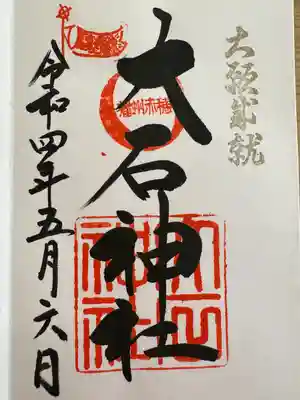 大願成就
播州赤穂
大石神社
大石神社
令和四年五月六日